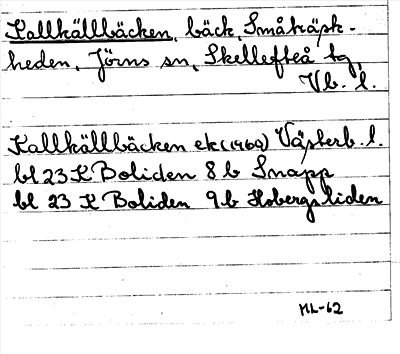 Kallkällbäcken, bäck, Småträsk-
heden, Jörns sn, Skellefteå tg,
Vb. l.
Kallkällbäcken ek (1969) Västerb. l.
bl 23 K Boliden 8 b Snapp
bl 23 K Boliden 9 b Hobergsliden
ML-62